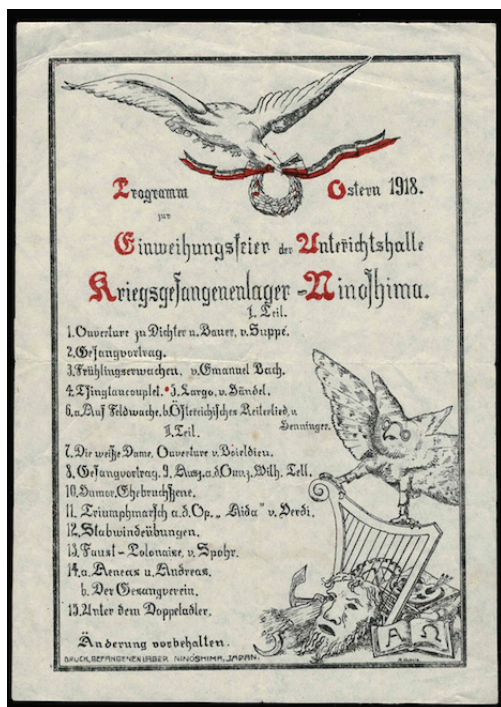 Programm Ostern 1918.
zur
Einweihungsfeier der Unterichtshalle
Kriegsgefangenenlager-Ninoshima.
1. Teil.
1. Ouverture zu Dichter u. Bauer, v. Suppé.
2. Gesangvortrag.
3. Frühlingserwachen. v. Emanuel Bach.
4. Tsingtaucouplet. 5. Largo. v. Händel.
6. a. Auf Feldwache. b. Östereichisches Reiterlied, v.
Senninger.
II. Teil.
7. Die weiße Dame. Ouverture v. Boieldieu.
8. Gesangvortrag. 9. Ausz. a. d. Ouv. z. Wilh. Tell.
10. Humor. Ehebruchszene.
11. Triumphmarsch a. d. Op. „Aida" v. Verdi.
12. Stabwindeübungen.
13. Faust-Polonaise, v. Spohr.
14. a. Aeneas u. Andreas.
b. Der Gesangverein.
15. Unter dem Doppeladler.
Α Ω
Änderung vorbehalten.
DRUCK, GEFANGENENLAGER NINOSHIMA, JAPAN.